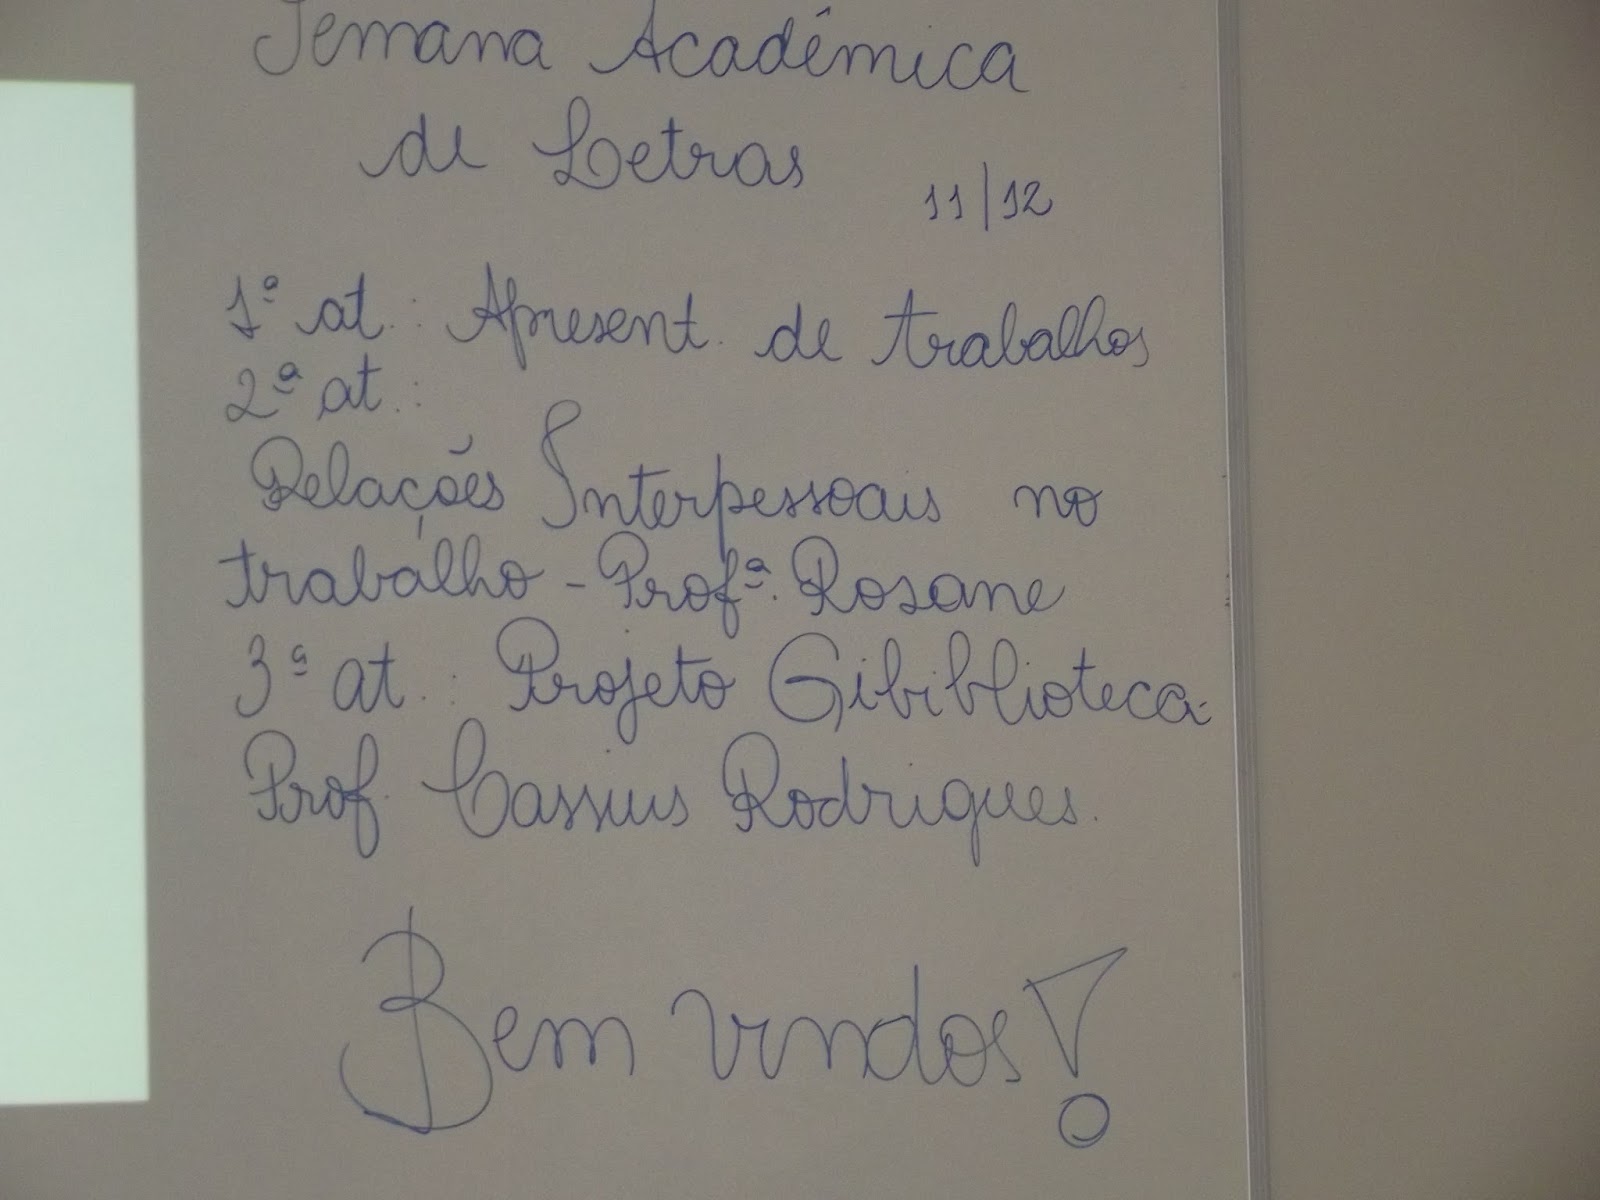 Semana Acadêmica
de Letras
11/12
1ª at.: Apresent. de trabalhos
2ª at.:
Relações Interpessoais no
trabalho - Profª. Rosane
3ª at.: Projeto Gibiblioteca.
Prof. Cassius Rodrigues.
Bem vindos!